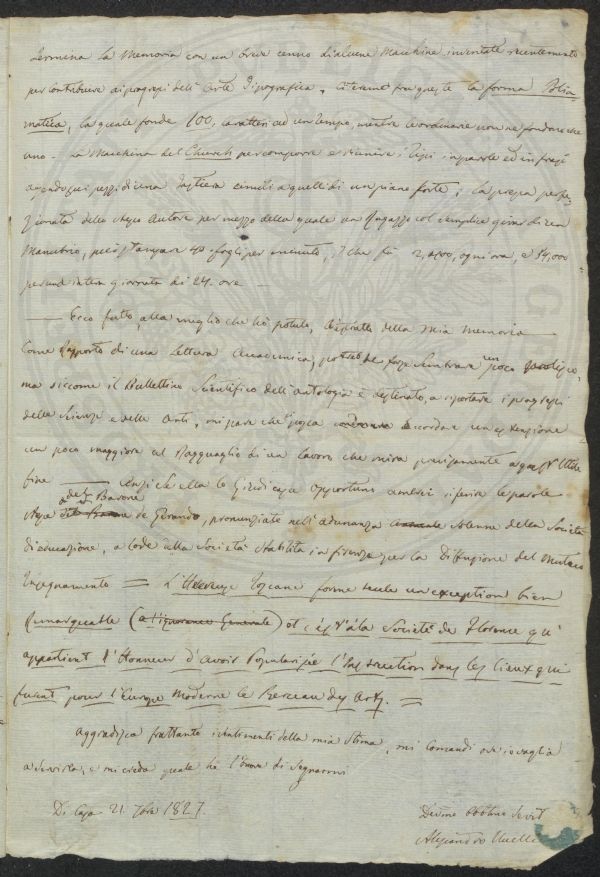 termina la Memoria con un breve cenno di alcune Macchine inventate recentemente
per contribuire ai progressi dell' Arte Tipografica, citeremo fra queste la forma Polia
matica, la quale fonde 100, caratteri ad un tempo, mentre le ordinarie non ne fondono che
uno - La Macchina del Church per comporre e riunire i Tipi in parole ed in frasi
agendo sui pezzi di una Tastiera simili a quelli di un piano forte; la pressa perfe-
zionata dello stesso Autore per mezzo della quale un Ragazzo col semplice girar di un
Manubrio, può stampare 40 fogli per minuto, il che fa 2,400, ogni ora, e 54,000
per una intera giornata di 24. ore -
— Ecco fatto, alla meglio che ho potuto, l'estratto della mia Memoria —
Come Rapporto di una lettura Accademica, potrebbe forse sembrare un poco prolisso,
ma siccome il Bullettino Scientifico dell'antologia è destinato, a riportare i progressi
delle Scienze e delle Arti, mi pare che possa accordare un estensione
un poco maggiore al Ragguaglio di un lavoro che mira precisamente a quest' Utile
fine — ella le Giudicasse opportuno amerei riferire le parole
del Sig. Barone
de Gerando, pronunziate nell' adunanza solenne della Società
di educazione, a lode della Società stabilita in firenze per la Diffusione del Mutuo
Insegnamento = L'Heureuse Toscane forme seule un exception bien
Remarquable (a l'ignorance Générale) et c'est à la Société de Florence qu'
appartient l'Honneur d'avoir Popularisée l'Instruction dans les lieux qui
furent pour l'Europe Moderne le Berceau des Arts. =
Aggradisca frattanto i sentimenti della mia stima, mi comandi ove io vaglia
a servirla, e mi creda quale ho l'onore di segnarmi
Di Casa 21. 7bre 1827.
Devmo Obblmo Servit
Alessandro